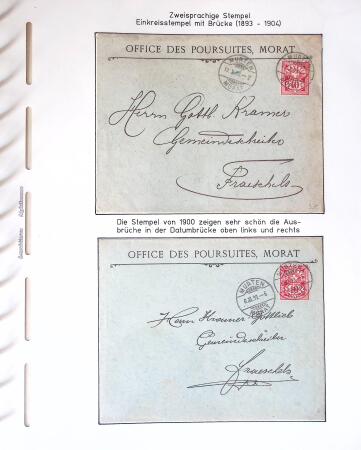 Zweisprachige Stempel
Einkreisstempel mit Brücke (1893 - 1904)
OFFICE DES POURSUITES, MORAT
MURTEN
Herrn Gottl. Kramer
Gemeindeschreiber
Fraeschels
Die Stempel von 1900 zeigen sehr schön die Aus-
brüche in der Datumbrücke oben links und rechts
OFFICE DES POURSUITES, MORAT
MURTEN
Herrn Kramer Gottlieb
Gemeindeschreiber
Fraeschels